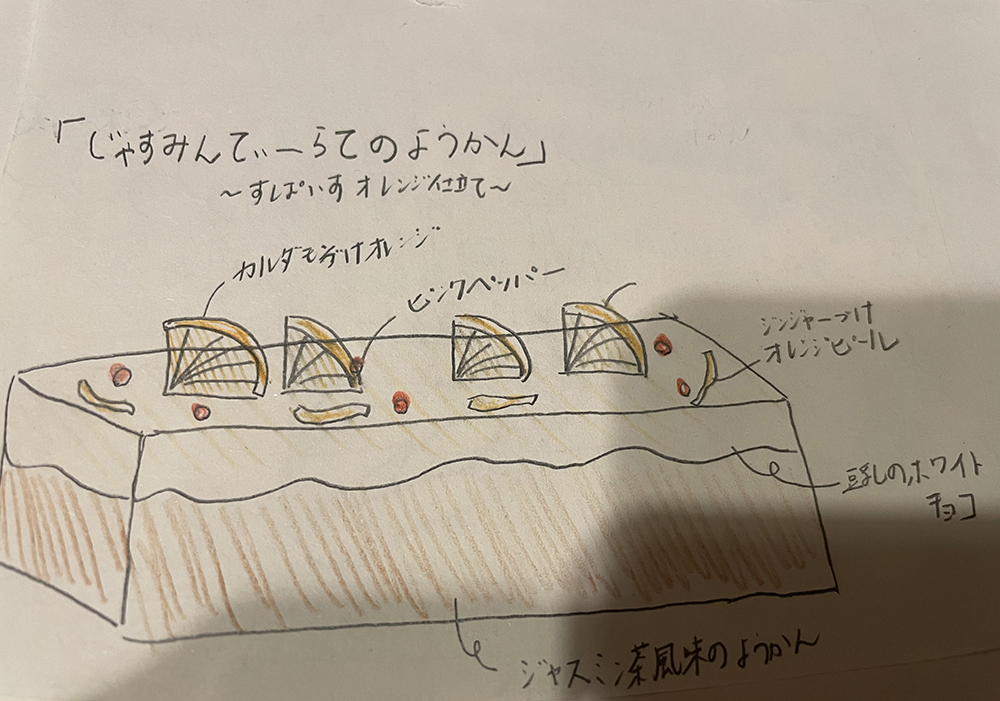 「じゃすみんてぃーらてのようかん」
～すぱいす オレンジ仕立て～
カルダモン漬けオレンジ
ピンクペッパー
ジンジャーづけ
オレンジピール
豆乳のホワイト
チョコ
ジャスミン茶風味のようかん